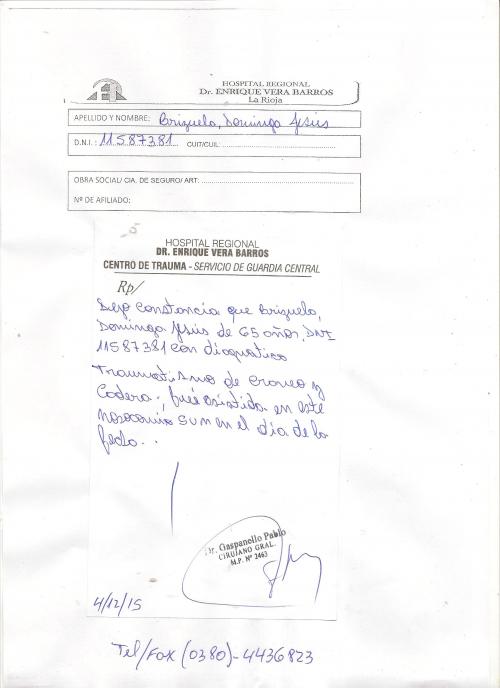 HOSPITAL REGIONAL
Dr. ENRIQUE VERA BARROS
La Rioja
APELLIDO Y NOMBRE: Brizuela, Domingo Jesús
D.N.I.: 11587381 CUIT/CUIL:
OBRA SOCIAL/ CIA. DE SEGURO/ ART:
Nº DE AFILIADO:
HOSPITAL REGIONAL
DR. ENRIQUE VERA BARROS
CENTRO DE TRAUMA - SERVICIO DE GUARDIA CENTRAL
Rp/
Dejo constancia que Brizuela,
Domingo Jesús de 65 años, DNI
11587381 con diagnostico
Traumatismo de craneo y
Cadera, fué asistida en este
nosocomio en el día de la
fecha.
Dr. Gaspanello Pablo
CIRUJANO GRAL.
M.P. Nº 2463
4/12/15
Tel/Fax (0380)-4436823